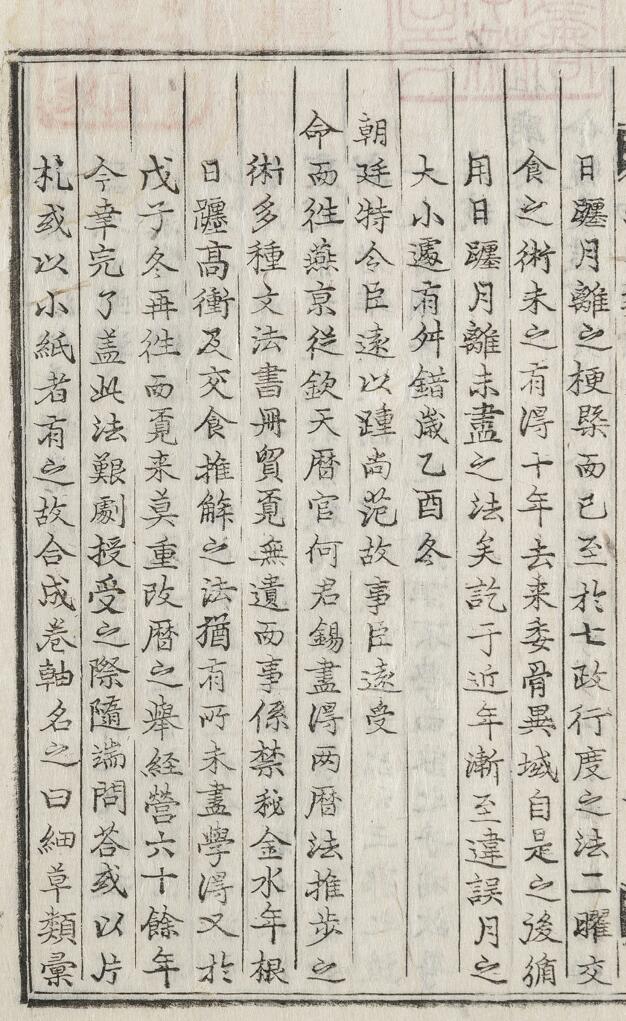 日躔月離之梗槩而已至於七政行度之法二曜交
食之術未之有得十年去來委骨異域自是之後循
用日躔月離未盡之法矣訖于近年漸至違誤月之
大小遽有舛錯歲乙酉冬
朝廷特令臣遠以踵尚范故事臣遠受
命而徃燕京從欽天曆官何君錫盡得两曆法推步之
術多種文法書册貿覔無遺而事係禁秘金水年根
日躔高衝及交食推觧之法猶有所未盡學得又於
戊子冬再徃而覔来莫重改曆之擧經營六十餘年
今幸完了盖此法艱劇授受之際隨端問荅或以片
札或以小紙者有之故合成卷軸名之曰細草類彙